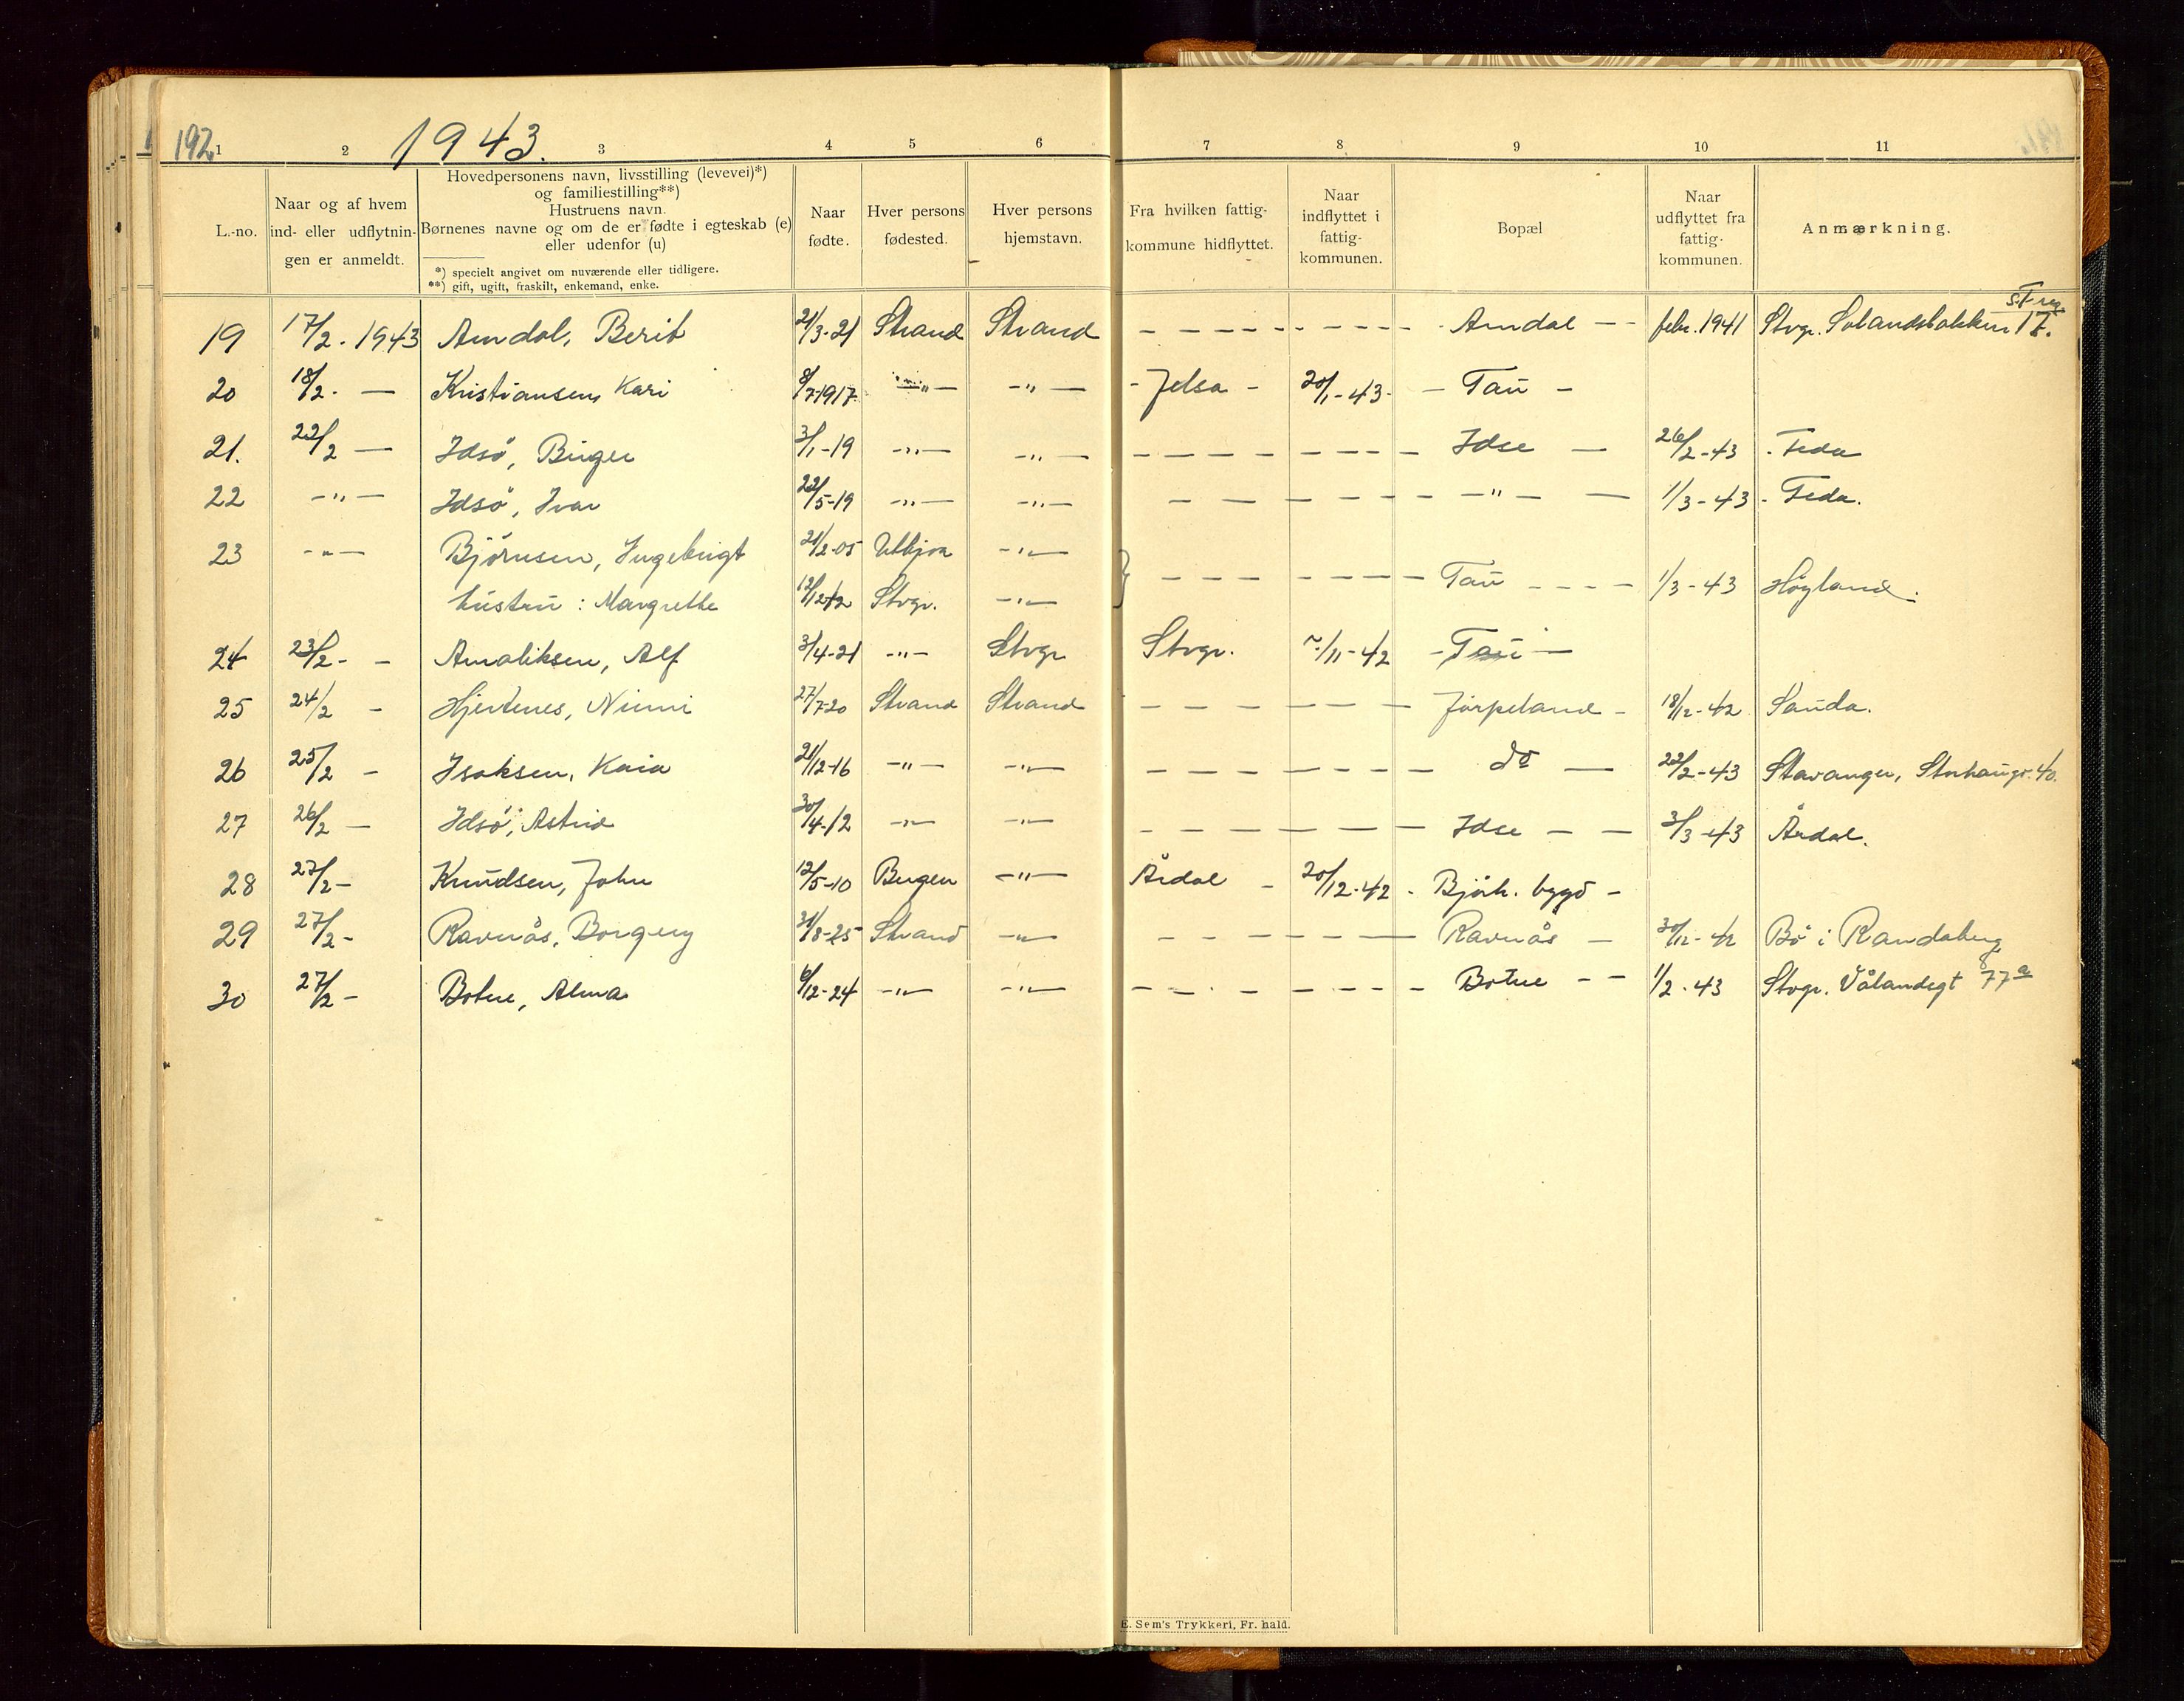 192 1943.
1 2 3 4 5 6 7 8 9 10 11
L.-no.
Naar og af hvem
ind- eller udflytnin-
gen er anmeldt.
Hovedpersonens navn, livsstilling (levevei)*)
og familiestilling**)
Hustruens navn.
Børnenes navne og om de er fødte i egteskab (e)
eller udenfor (u)
*) specielt angivet om nuværende eller tidligere.
**) gift, ugift, fraskilt, enkemand, enke.
Naar
fødte.
Hver persons
fødested.
Hver persons
hjemstavn.
Fra hvilken fattig-
kommune hidflyttet.
Naar
indflyttet i
fattig-
kommunen.
Bopæl
Naar
udflyttet fra
fattig-
kommunen.
Anmærkning.
19 17/2. 1943 Amdal, Berit 21/3-21 Strand Strand - - - - Amdal -- febr. 1941 Stvgr. Solandsbakken 17.
20 18/2. — Kristiansen, Kari 8/7-1917 -"- -"- - Jelsa - 20/1-43- - Tau -
21. 22/2 — Idsö, Birger 3/1-19 -"- -"- - - - - Idse — 26/2-43 - Feda
22 -"- Idsö, Ivar 22/5-19 -"- -"- - - - - -"- — 1/3-43 - Feda.
23 -"- Björnsen, Ingebrigt 21/2-05 Utbjoa -"-
hustru: Margrethe 12/12-12 Stvgr. -"- } - - - - Tau - - - 1/3-43 Høyland.
24 23/2- - Amaliksen, Alf 3/4-21 -"- Stvgr Stvgr. /11-42 - Tau —
25 24/2 - Hjertenes, Nimmi 27/7-20 Strand Strand - - - - Jørpeland - 18/12-42 Sauda.
26 25/2 - Isaksen, Kaia 21/12-16 -"- -"- - - - - do — 22/2-43 Stavanger, Storhaugv. 40.
27 26/2 — Idsö, Astrid 30/4-12 -"- -"- - - - - Idse - - 3/3-43 Årdal.
28 27/2- Knudsen, John 12/5-10 Bergen -"- Årdal - 20/12-42 - Bjørh. bygd -
29 27/2- Ravnås, Borgny 31/8-25 Strand -"- - - - - Ravnås - 30/12-42 Bö i Randaberg
30 27/2- Botne, Alma 6/12-24 -"- -"- - - - - Botne -- 1/2-43 Stvgr. Vålandsgt 77a
E. Sem's Trykkeri, Fr. hald.